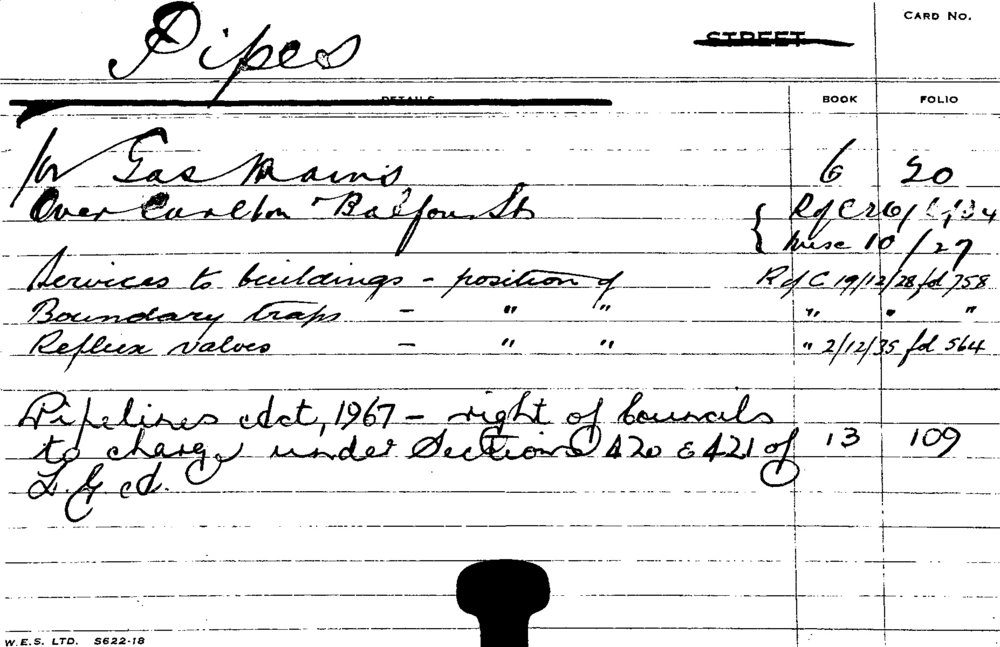 Pipes
STREET
CARD No.
DETAILS
BOOK FOLIO
for Gas Mains 6 20
Over Carlton Balfour Sts { R of C 26/
{ Misc 10/27
Services to buildings - position of R of C 19/12/28 fol 758
Boundary traps - " " " " "
Reflux valves - " " " 2/12/35 fol 564
Pipelines Act, 1967 - right of Councils
to charge under Sections 420 & 421 of 13 109
L.G.A.
W.E.S. LTD. S622-18